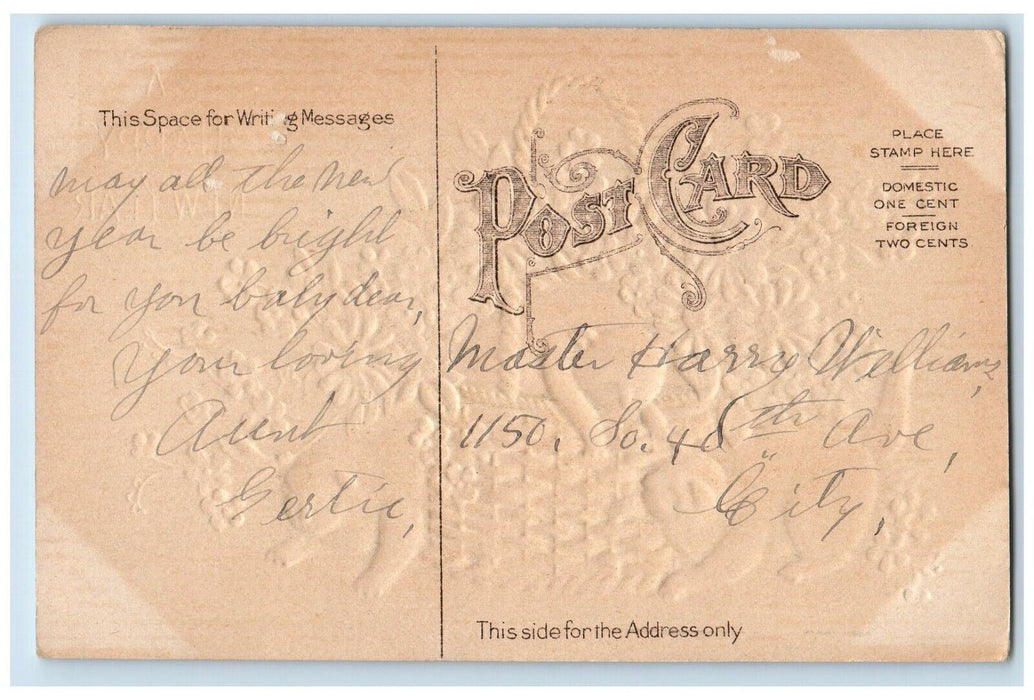 This Space for Writing Messages
may all the new
year be bright
for you baby dear,
Your loving
Aunt
Gertie,
POST CARD
PLACE
STAMP HERE
DOMESTIC
ONE CENT
FOREIGN
TWO CENTS
Master Harry Williams,
1150. So. 40th Ave,
City,
This side for the Address only